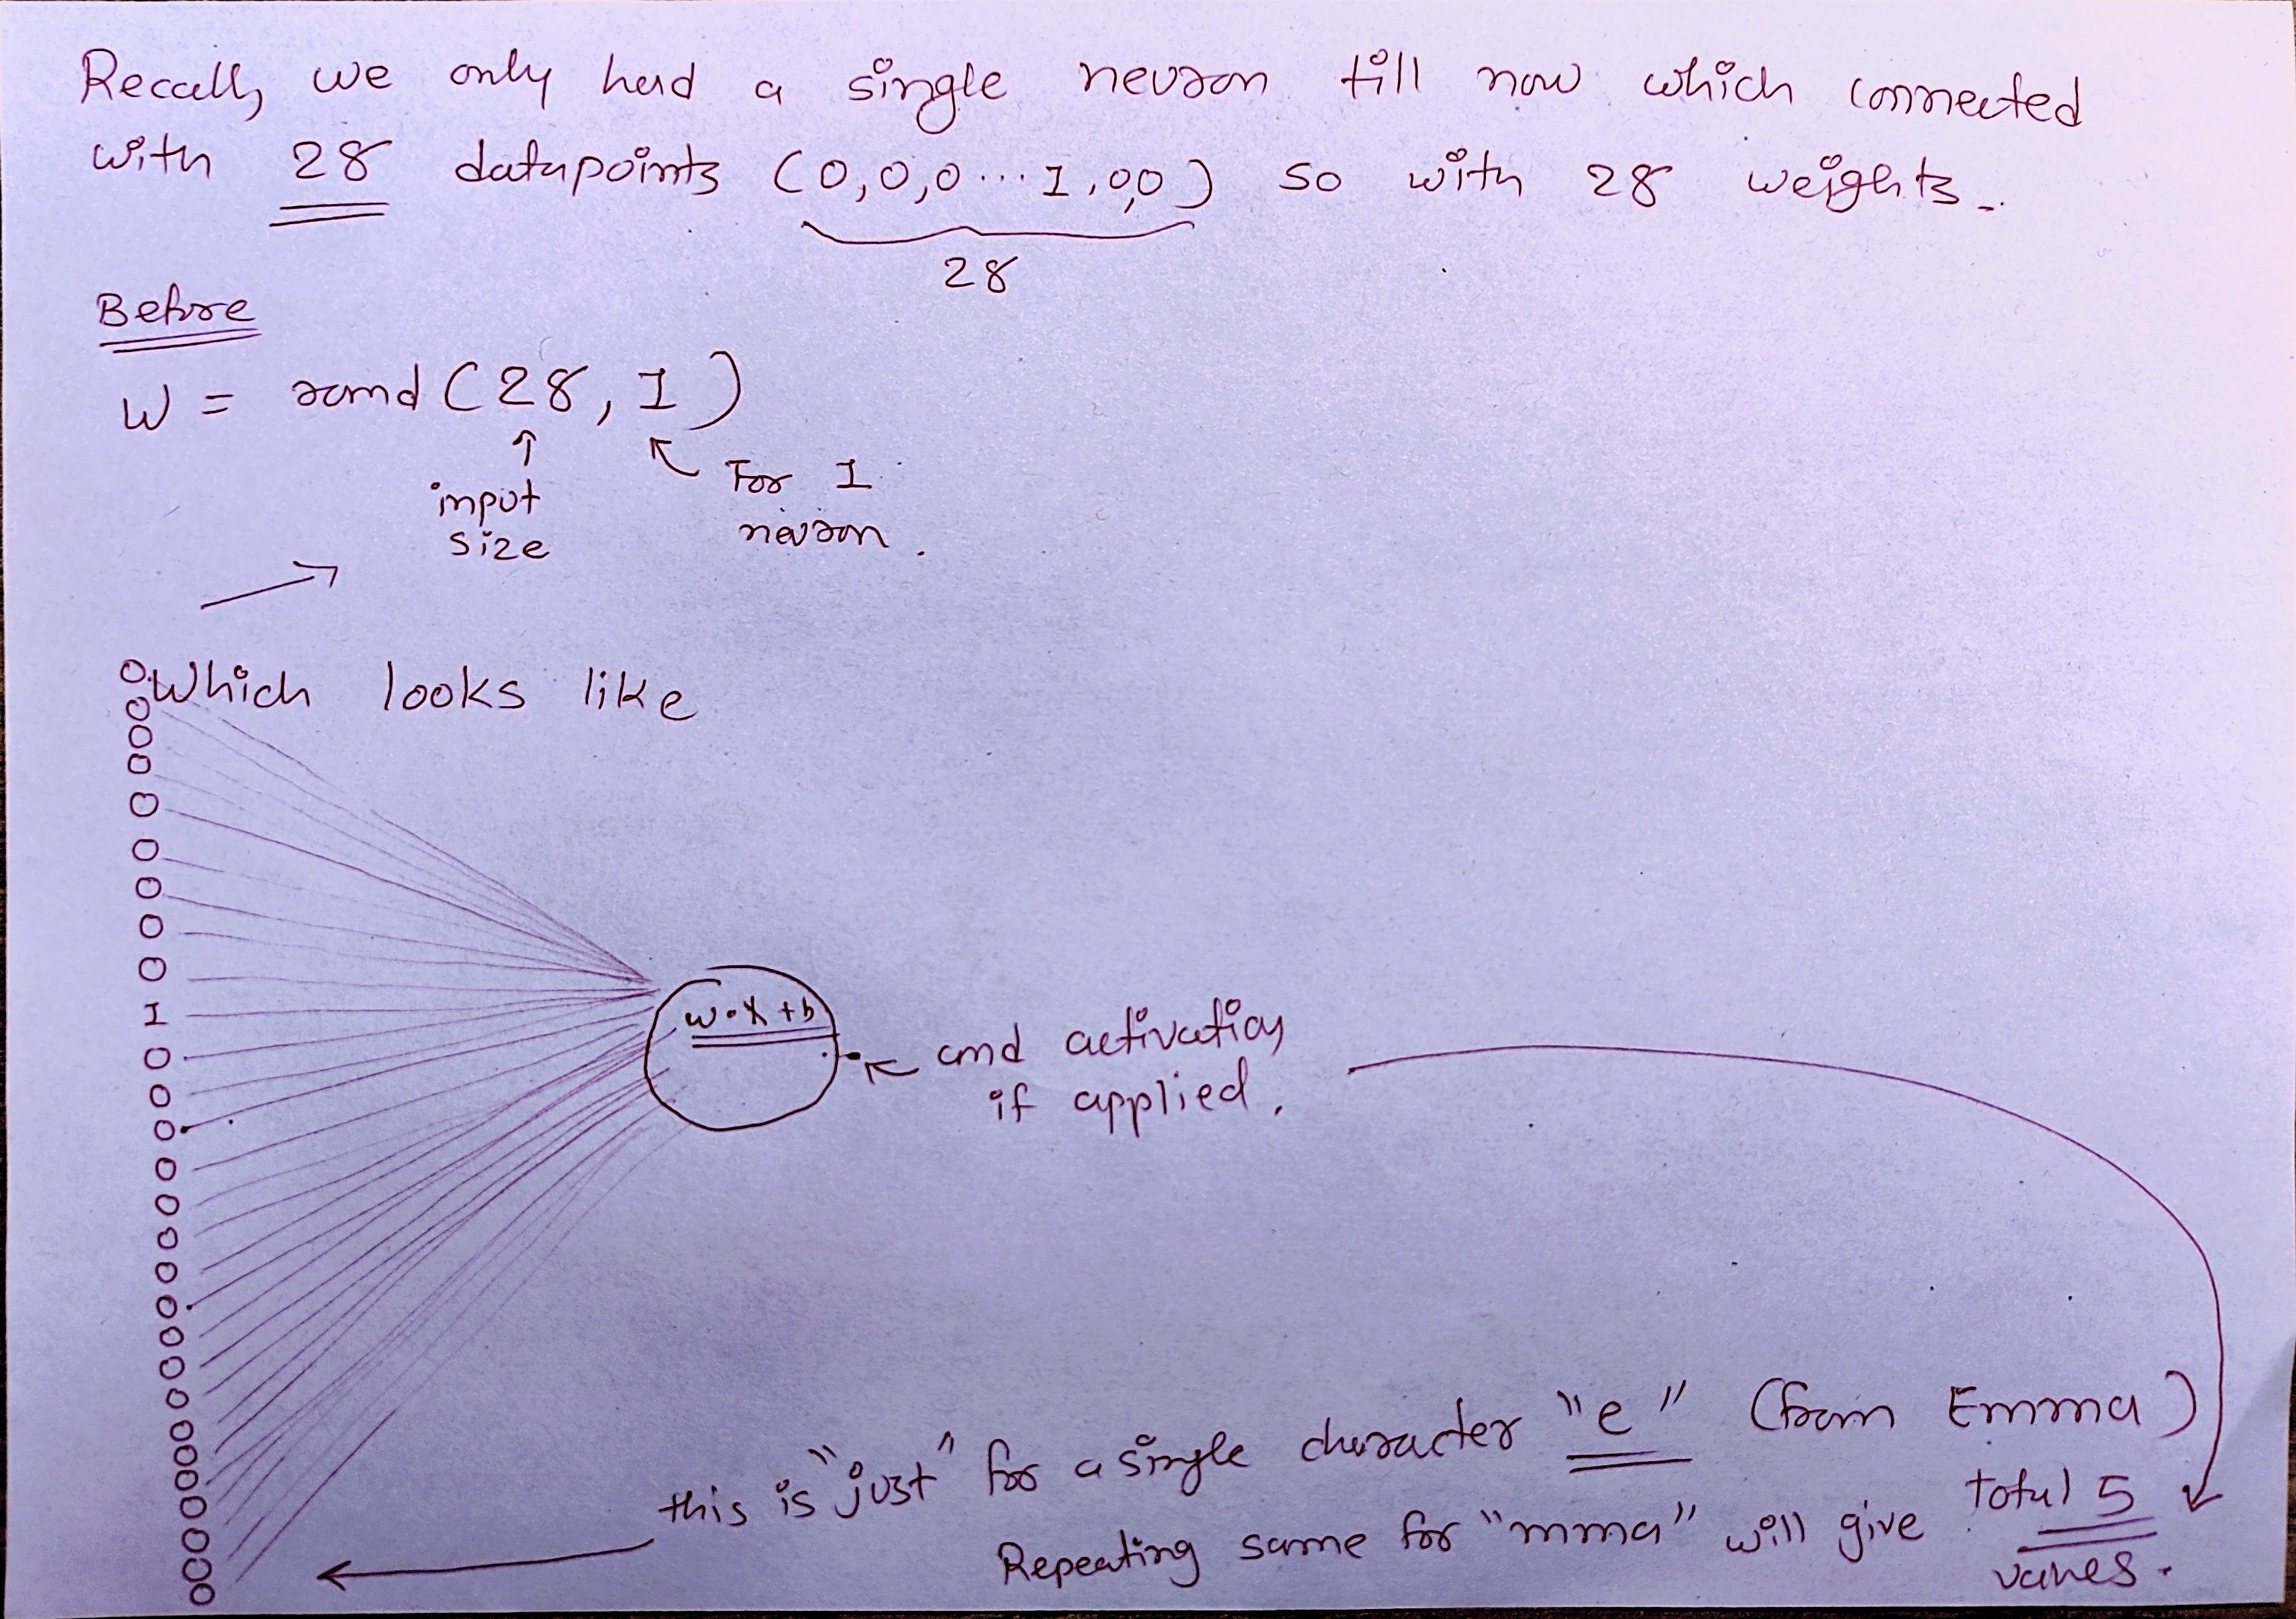 Recall, we only had a single neuron till now which connected
with 28 datapoints (0,0,0...1,0,0) so with 28 weights.
28
Before
W = rand (28, 1)
input
size
For 1
neuron.
Which looks like
0
0
0
0
0
0
0
0
0
1
0
0
0
0
0
0
0
0
0
0
0
0
0
0
0
0
0
0
w•x+b
and activation
if applied.
this is "just" for a single character "e" (from Emma)
Repeating same for "mma" will give total 5
values.